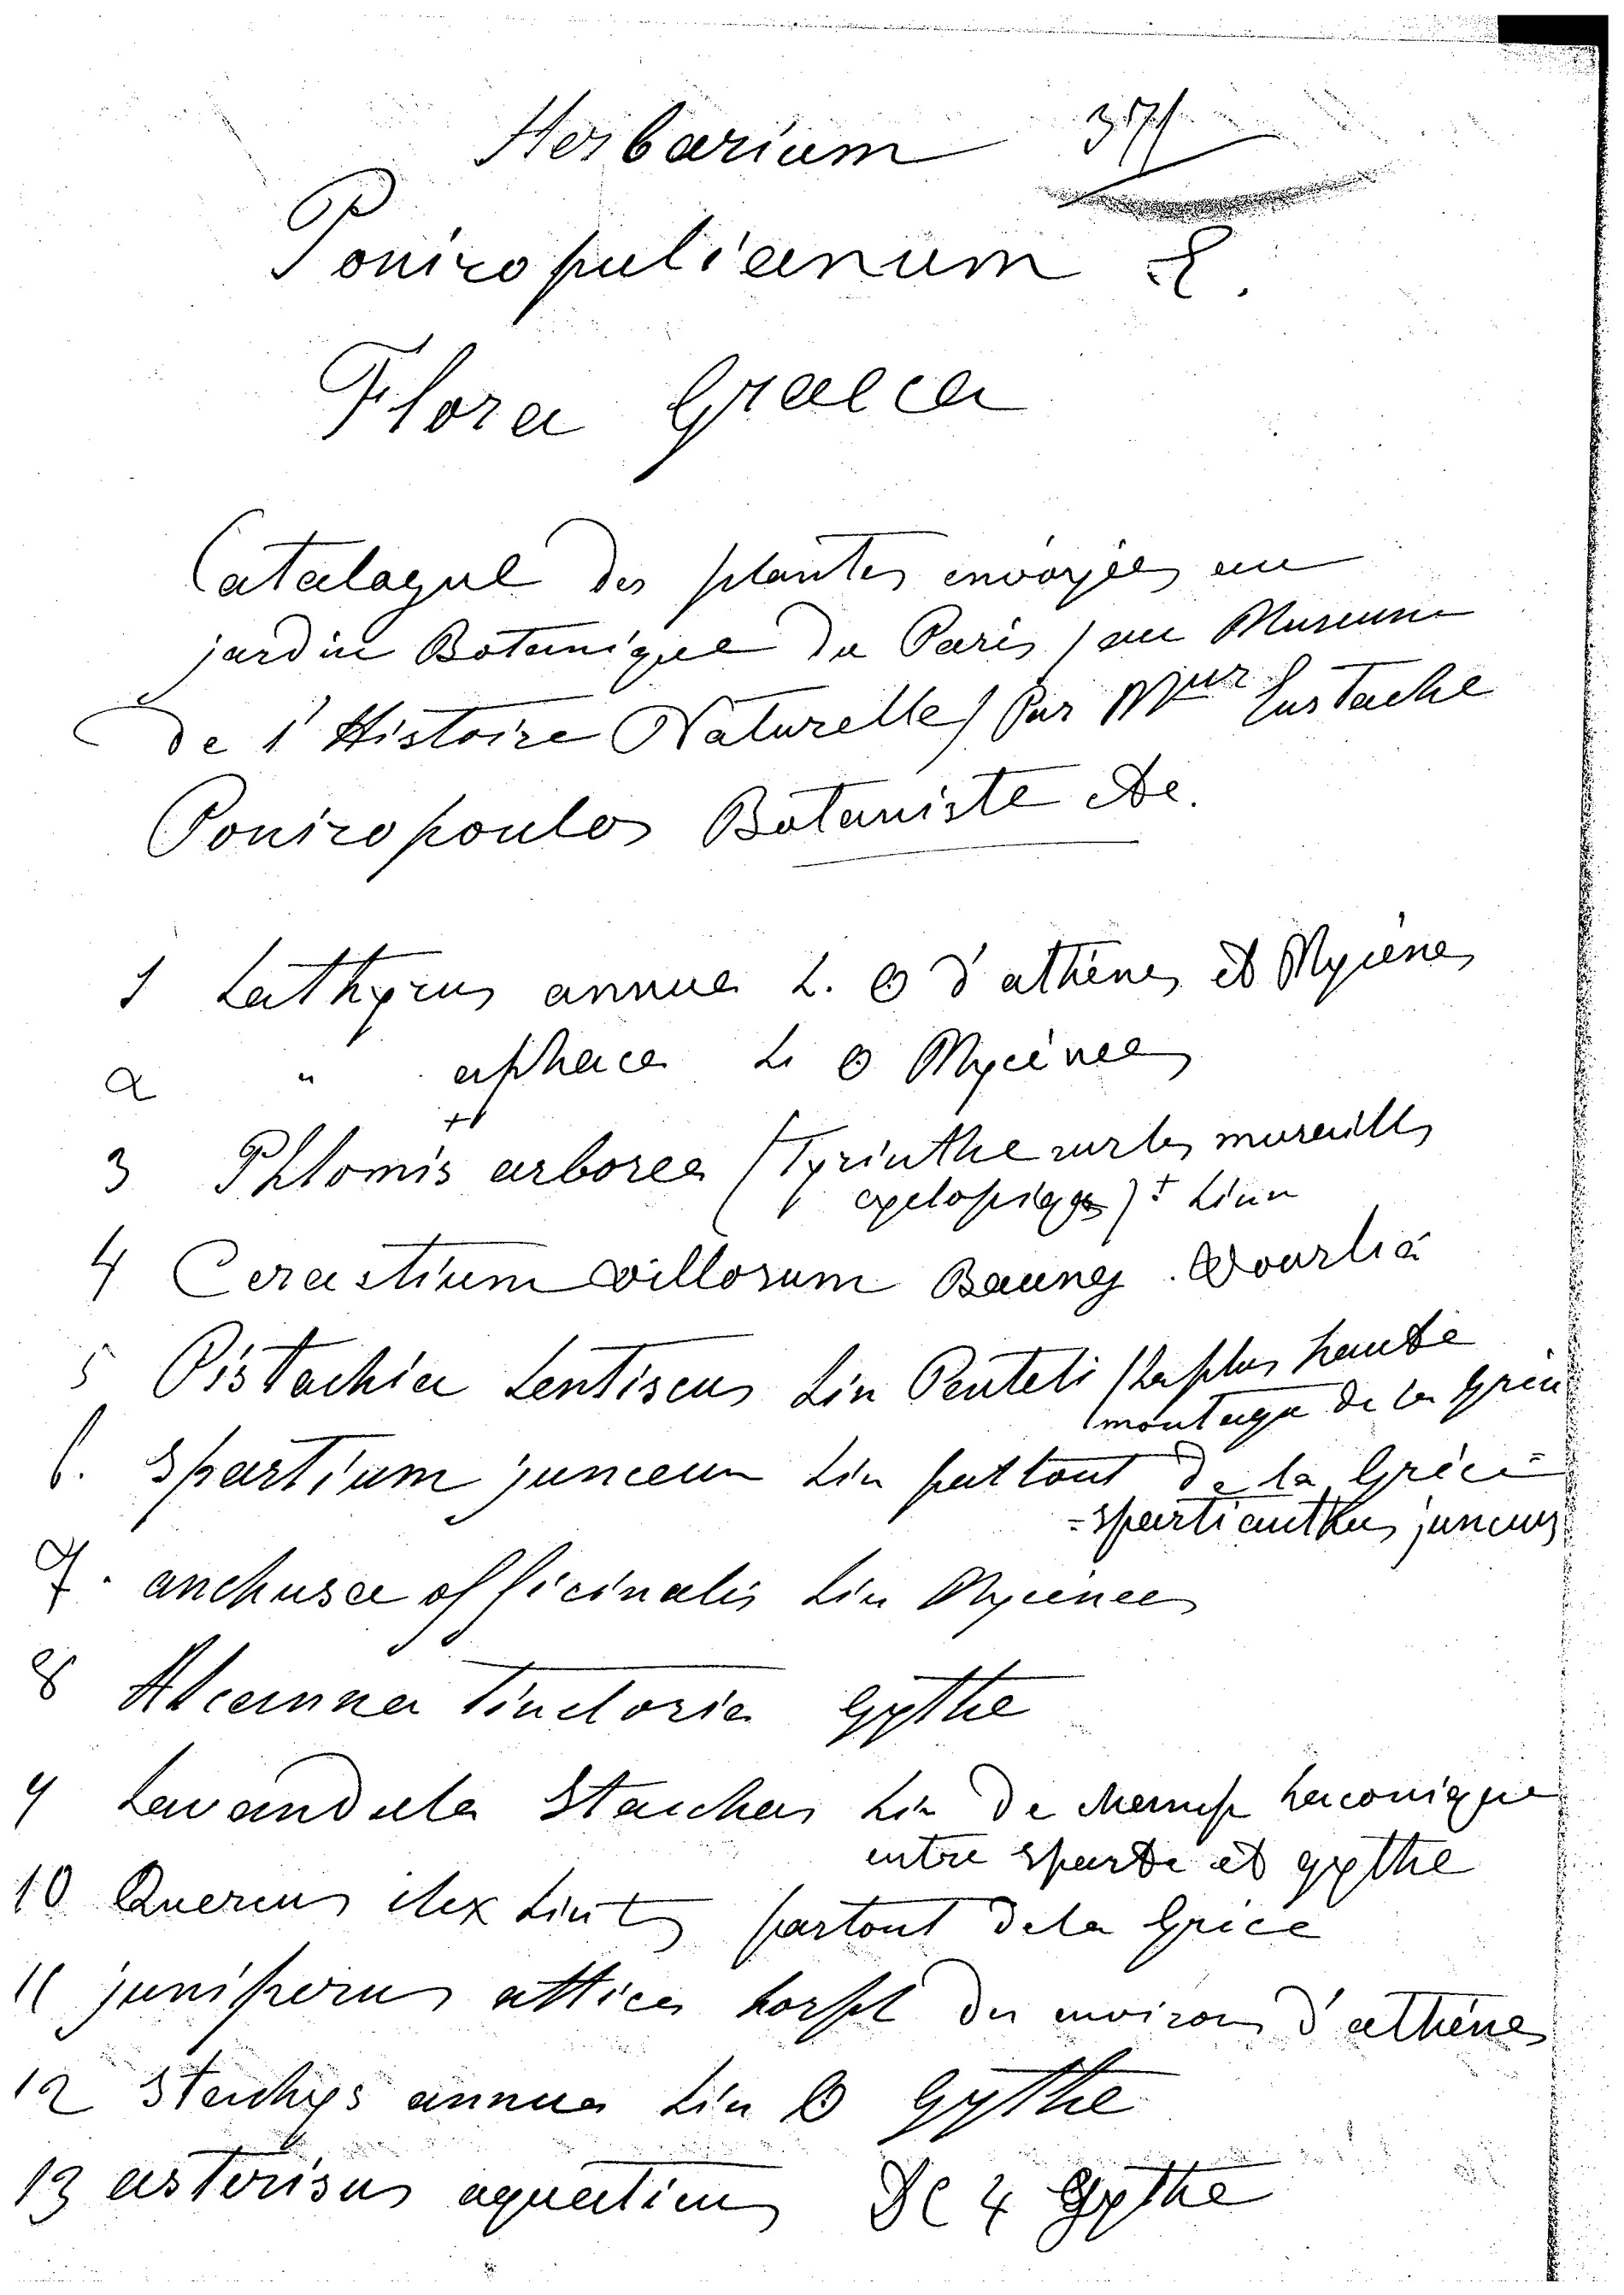 Herbarium 371
Poniropulianum E.
Flora Graeca
Catalogue des plantes envoyées au
jardin Botanique du Paris (au Museum
de l'Histoire Naturelle) Par Mʳ Eustache
Poniropoulos Botaniste etc.
1 Lathyrus annua L. ʘ d'athènes et Mycènes
2 " aphaca L. ʘ Mycènes
3 Phlomis arborea (Tyrinthe sur les murailles
cyclopiques) ± Linn
4 Cerastium villosum Baung. Vourlia
5 Pistachia Lentiscus Lin Penteli (la plus haute
montagne de la Grèce
6. Spartium junceum Lin partout de la Grèce
= spartianthus junceus
7. anchusa officinalis Lin Mycènes
8 Alcanna Tinctoria Gythe
9 Lavandula Staechas Lin de Laconique
entre sparte et gythe
10 Quercus ilex Lin partout de la Grèce
11 juniperus attica des environs d'athènes
12 Stachys annua Lin ʘ Gythe
13 asteriscus aquaticus DC 4 Gythe